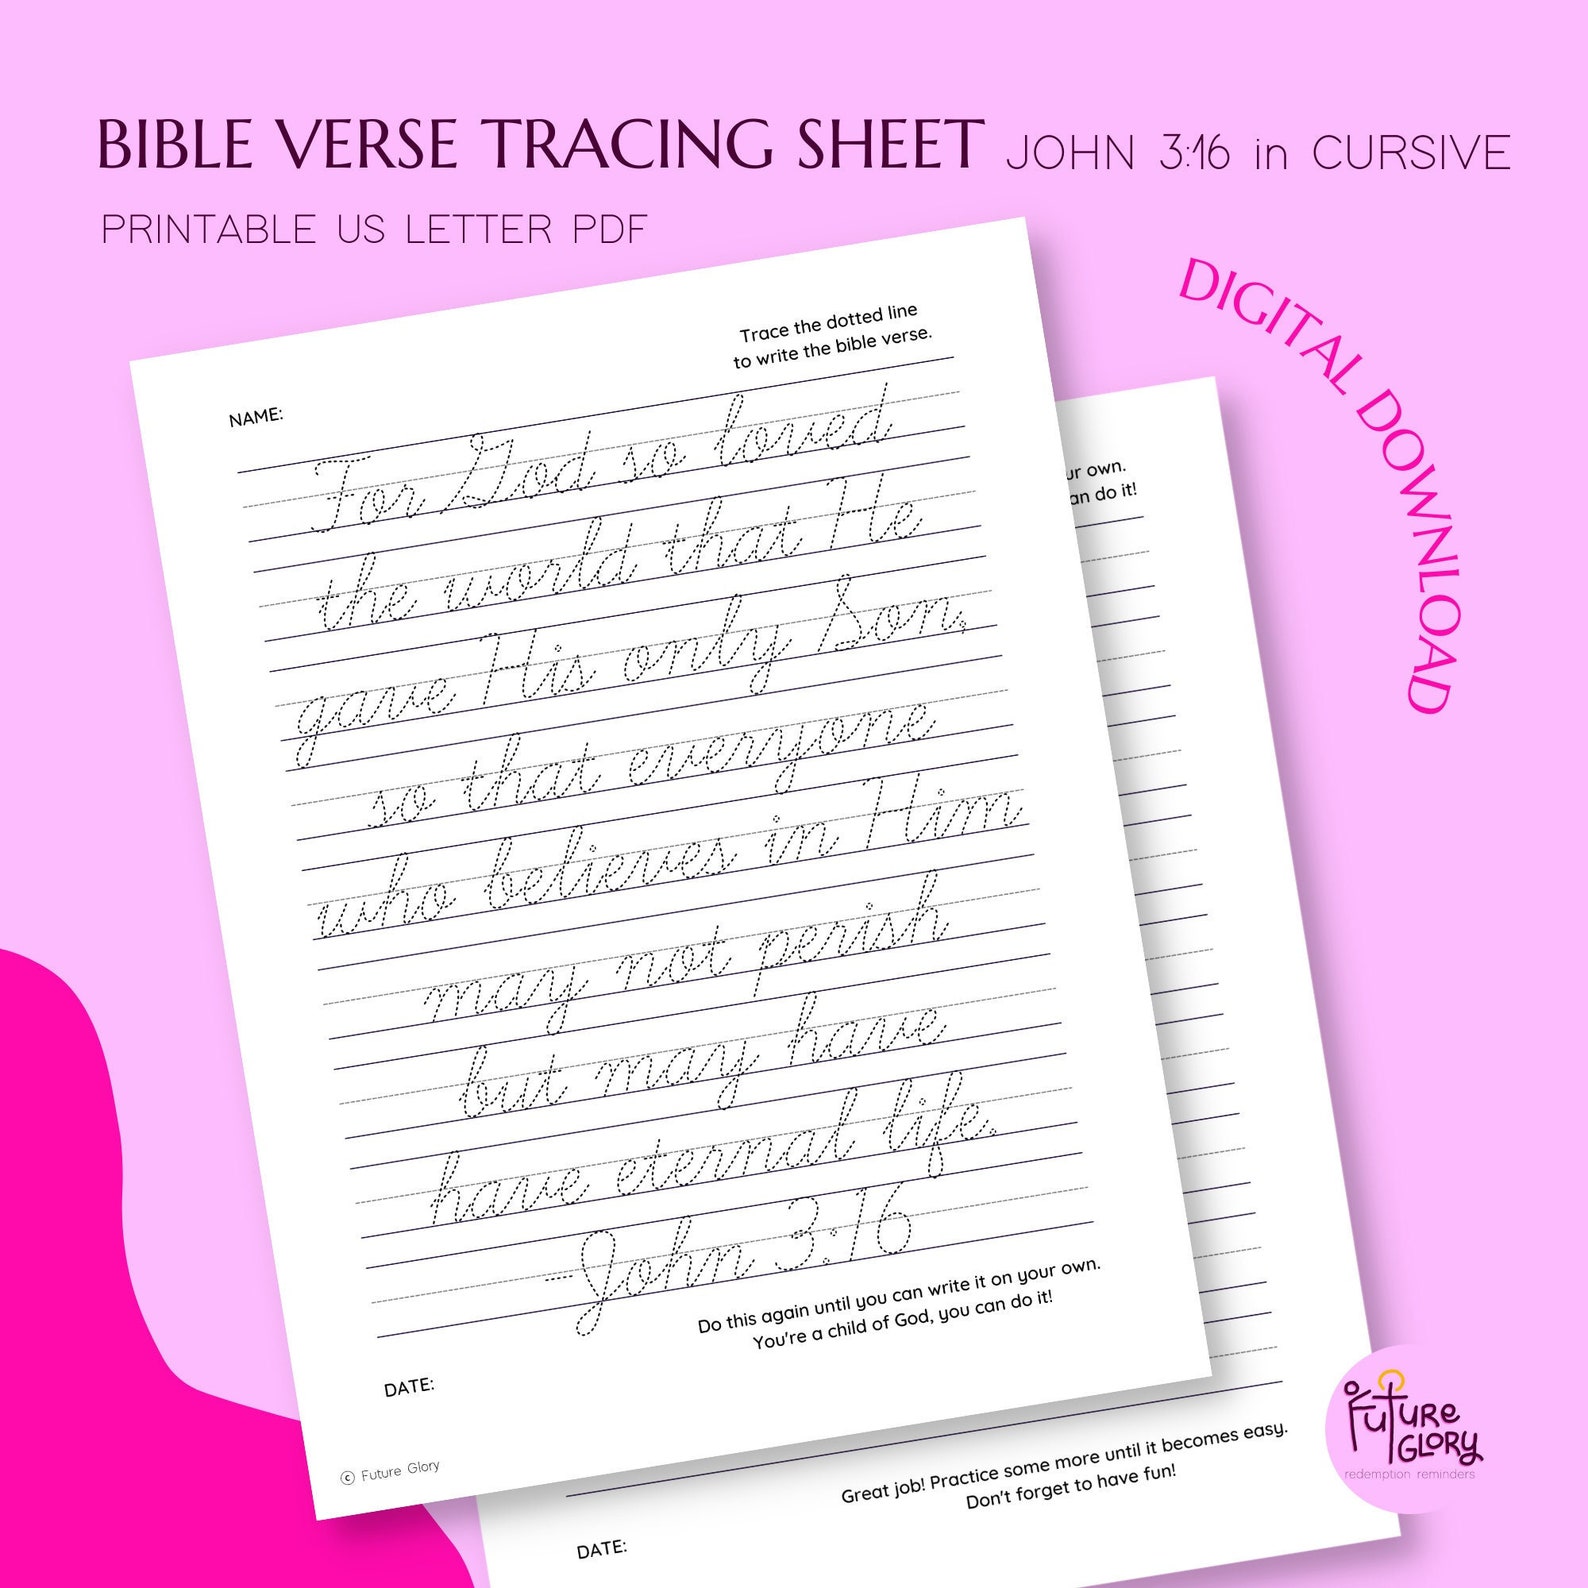 BIBLE VERSE TRACING SHEET JOHN 3:16 in CURSIVE
PRINTABLE US LETTER PDF
DIGITAL DOWNLOAD
Trace the dotted line
to write the bible verse.
NAME:
For God so loved
the world that He
gave His only Son,
so that everyone
who believes in Him
may not perish
but may have
have eternal life.
-John 3:16
Do this again until you can write it on your own.
You're a child of God, you can do it!
DATE:
© Future Glory
ur own.
an do it!
Great job! Practice some more until it becomes easy.
Don't forget to have fun!
DATE:
FUTURE
GLORY
redemption reminders